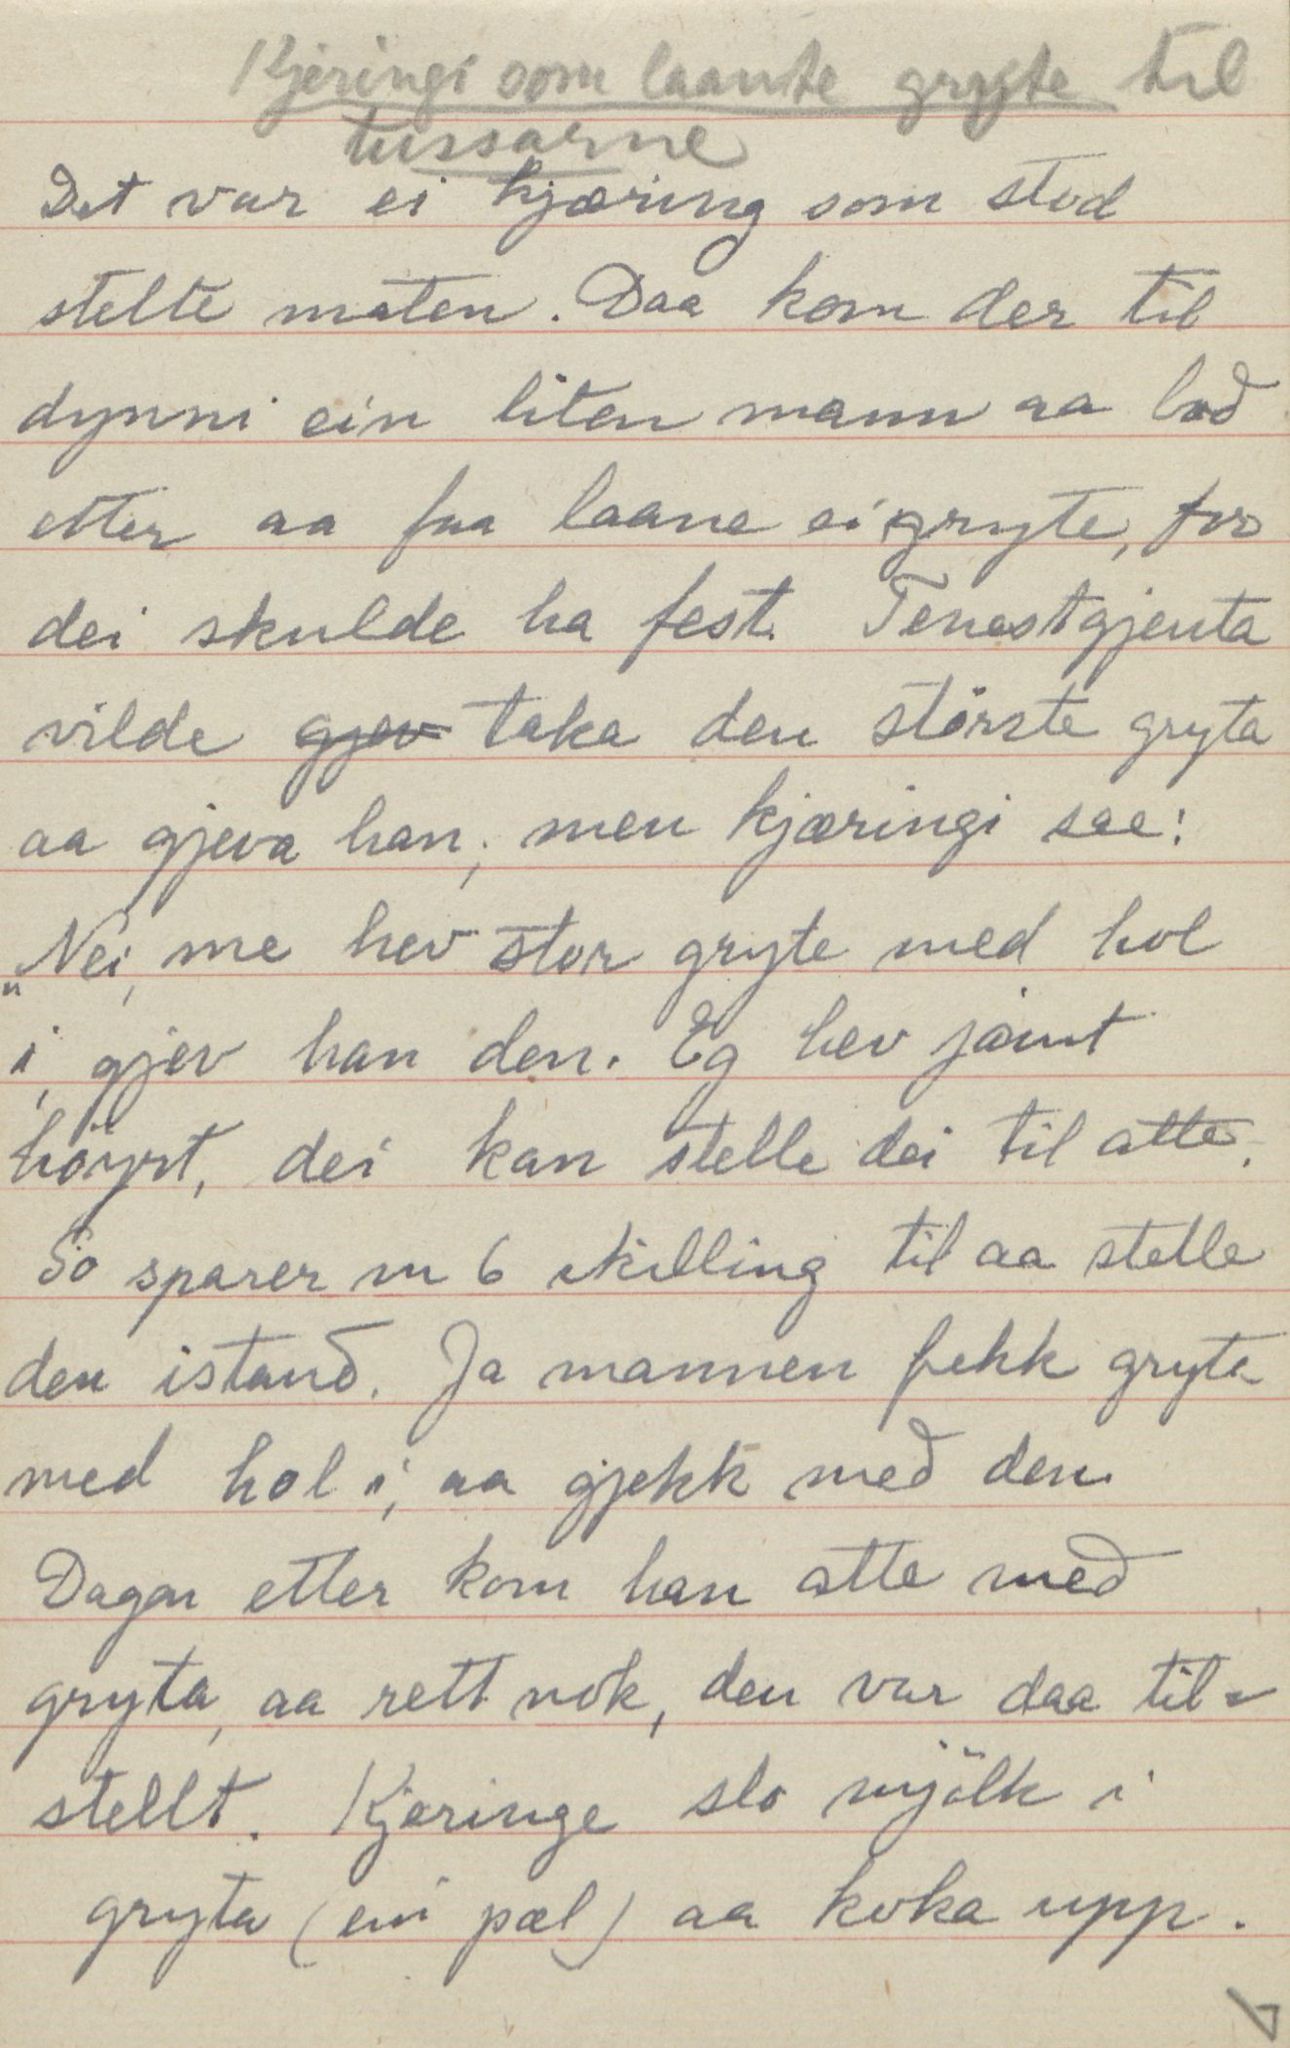 Kjeringi som laante gryte til
tussarne
Det var ei kjæring som stod
stelte maten. Daa kom der til
dynni ein liten mann aa bad
etter aa faa laane ei gryte, for
dei skulde ha fest. Tenestgjenta
vilde gjev taka den störste gryta
aa gjeva han, men kjæringi sae:
„Nei, me hev stor gryte med hol
i, gjev han den. Eg hev jamt
höyrt, dei kan stelle dei til atte.
So sparer m 6 skilling til aa stelle
den istand. Ja mannen fekk gryta
med hol i, aa gjekk med den.
Dagen etter kom han atte med
gryta, aa rett nok, den var daa til-
stellt. Kjeringe slo mjölk i
gryta (ein pæl) aa koka upp.